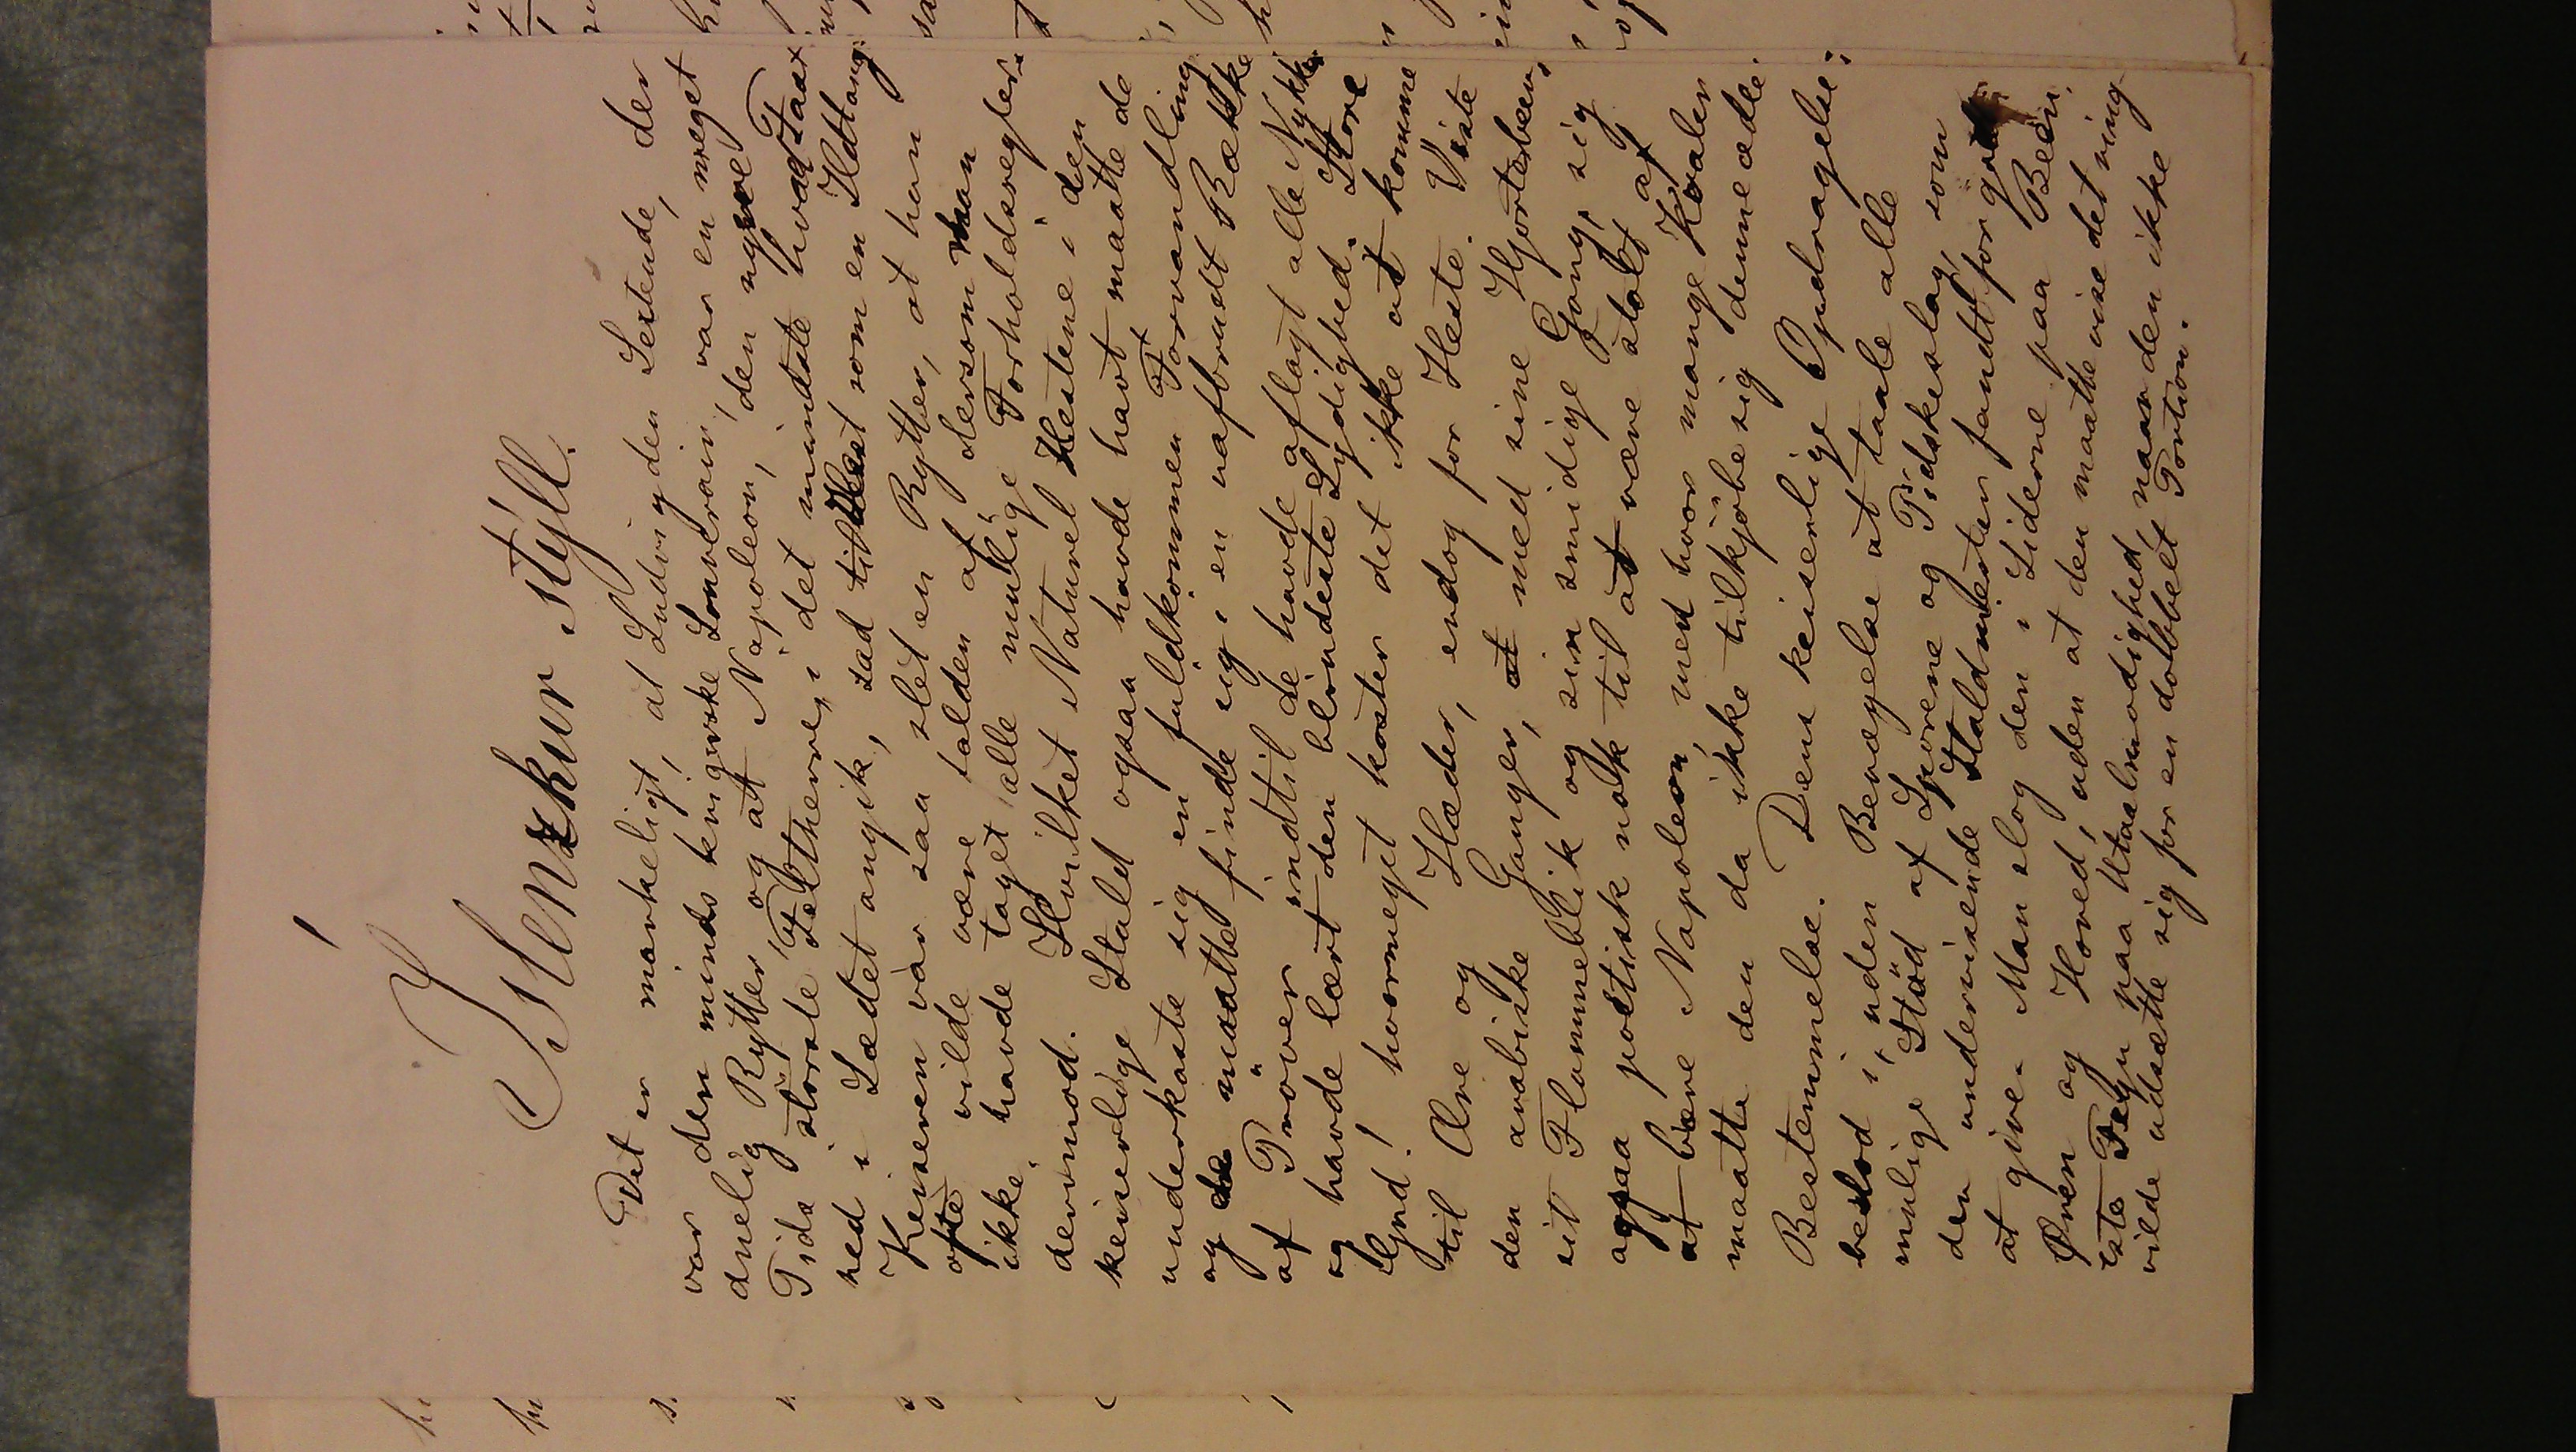 Íslenzkur stýll.
Det er mærkeligt, at Ludvig den Sextende, der
var den minds krigerske Souverain, var en meget
duelig Rytter, og at Napoleon, den nyere
Tids störste Feltherre, i det mindste hvad Faat
ned i Sædet angik, sad til Hest som en Ildtang
Keiseren var saa slet en Rytter, at han
ofte vilde være falden af dersom man
ikke havde taget alle mulige Forholdsregler
derimod. Hvilket Naturel Hestene i den
keiserlige Stald ogsaa havde havt maatte de
underkaste sig en fuldkommen Forvandling
og de maatte finde sig i en uafbrudt Række
af Pröver indtil de havde aflagt alle Nykker
og havde lært den blindeste Lydighed. Store
Gud! hvormeget koster det ikke at komme
til Ære og Hæder, endog for Heste. Viste
den arabiske Ganger, at med sine Hjorteben,
sit Flammeblik og sin smidige Gang, sig
ogsaa poetisk nok til at være stolt af
at bære Napoleon, med hvor mange Kvaler
maatte den da ikke tilkjöbe sig denne ædle
Bestemmelse. Dens keiserlige Opdragelse
bestod i, uden Bevægelse at taale alle
mulige Stöd af Sporene og Pidskeslag, som
den underviisende Staldmester fandt for godt
at give. Man slog den i Siderne paa Been,
Ören og Hoved, uden at den maatte vise det ring-
este Tegn paa Utaalmodighed, naar den ikke
vilde udsætte sig for en dobbelt Portion.